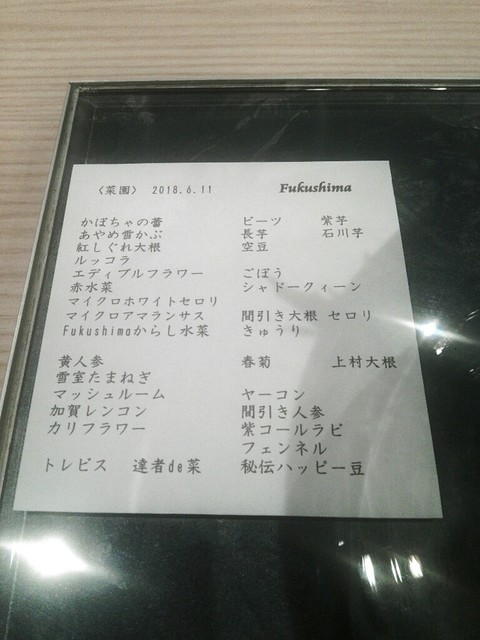 〈菜園〉 2018.6.11 Fukushima
かぼちゃの蕾 ビーツ 紫芋
あやめ雪かぶ 長芋 石川芋
紅しぐれ大根 空豆
ルッコラ
エディブルフラワー ごぼう
赤水菜 シャドークィーン
マイクロホワイトセロリ
マイクロアマランサス 間引き大根 セロリ
Fukushimaからし水菜 きゅうり
黄人参 春菊 上村大根
雪室たまねぎ
マッシュルーム ヤーコン
加賀レンコン 間引き人参
カリフラワー 紫コールラビ
フェンネル
トレビス 達者de菜 秘伝ハッピー豆